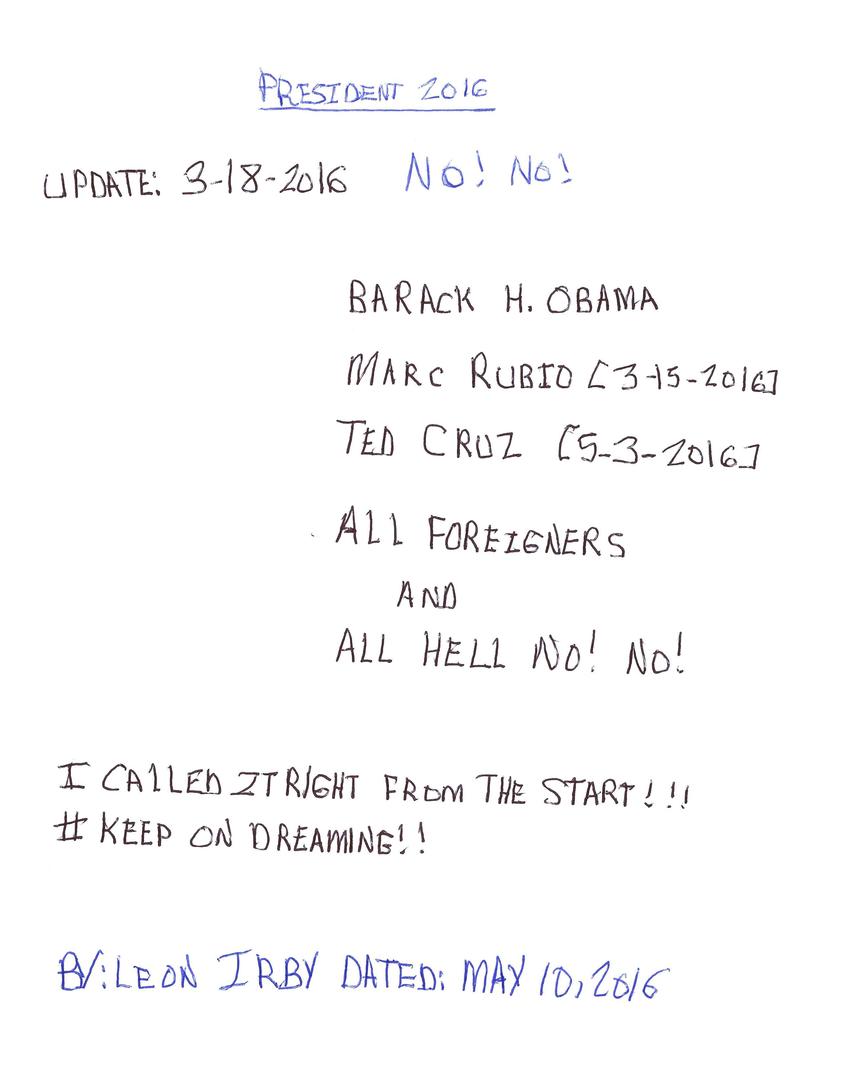 PRESIDENT 2016
UPDATE: 3-18-2016 NO! NO!
BARACK H. OBAMA
MARC RUBIO [3-15-2016]
TED CRUZ [5-3-2016]
ALL FOREIGNERS
AND
ALL HELL NO! NO!
I CALLED IT RIGHT FROM THE START!!!
# KEEP ON DREAMING!!
BY: LEON IRBY DATED: MAY 10, 2016